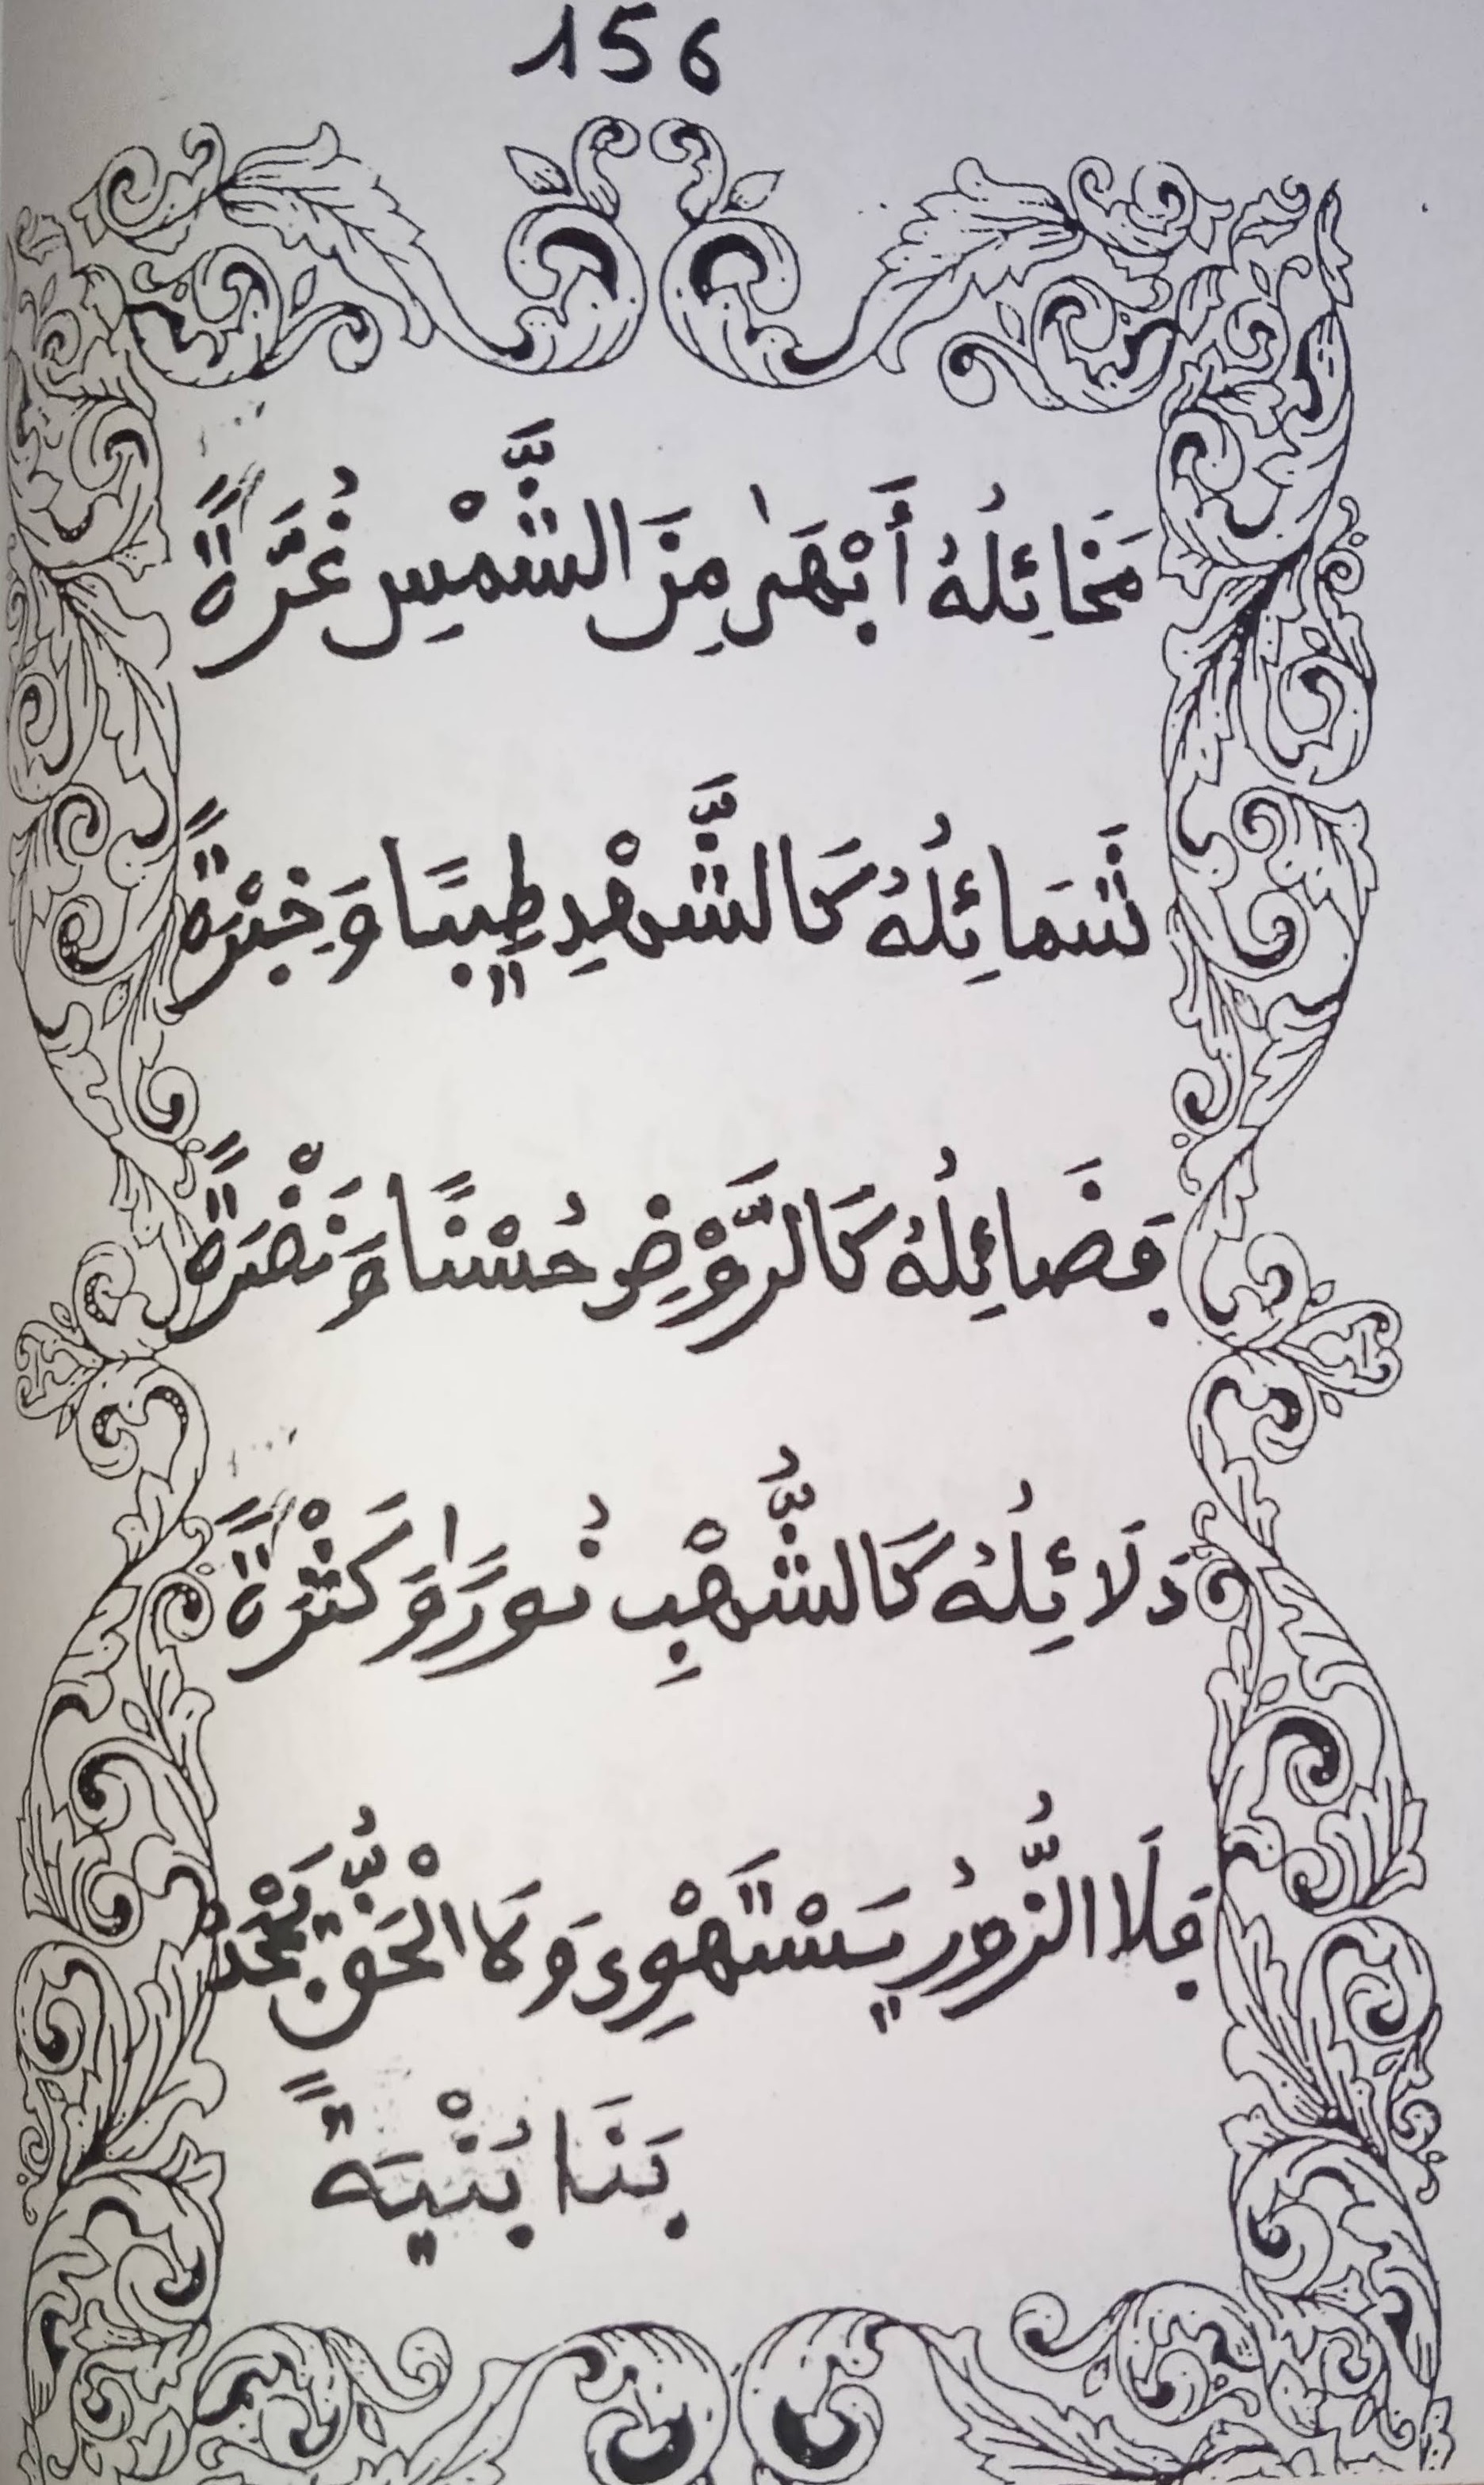 156
مَخَائِلُهُ أَبْهَىٰ مِنَ الشَّمْسِ غُرَّةً
شَمَائِلُهُ كَالشَّهْدِ طِيبًا وَخِبْرَةً
فَضَائِلُهُ كَالرَّوْضِ حُسْنًا وَنَضْرَةً
دَلَائِلُهُ كَالشُّهْبِ نُورًا وَكَثْرَةً
فَلَا الزُّورُ يَسْتَهْوِي وَلَا الْحَقُّ يُجْحَدُ
بَنَا بُنْيَةً